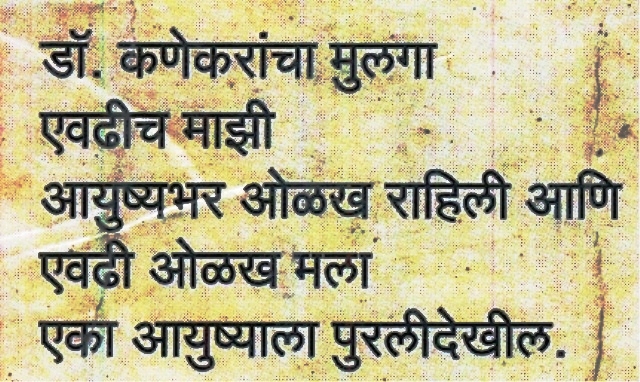 डॉ. कणेकरांचा मुलगा
एवढीच माझी
आयुष्यभर ओळख राहिली आणि
एवढी ओळख मला
एका आयुष्याला पुरलीदेखील.